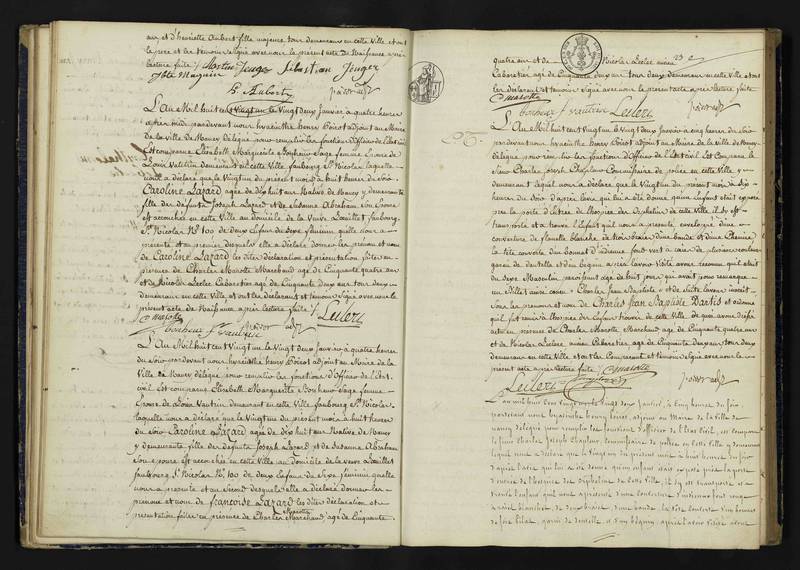 et d'henriette Aubert fille majeure tous demeurans en cette Ville et ont
le pere et les temoins signé avec nous le présent acte de Naissance après
lecture faite / Martin Jenger Sébastien Jenger
Aubert
L'An Mil huit cent Vingt un le Vingt deux Janvier à quatre heures
après midi pardevant nous hyacinthe henry Poirot adjoint au Maire
de la Ville de Nancy délégué pour remplir les fonctions d'Officier de l'Etat
civil est comparue Elisabeth Marguerite Bonheur Sage femme Epouse de
Louis Vautrin demeurant en cette Ville faubourg St. Nicolas laquelle
nous a déclaré que le Vingt un du présent mois à huit heures du Soir
Caroline Lazard agée de dix huit ans Native de Nancy y demeurante
fille des défunts Joseph Lazard et de Susanne Abraham son Epouse
est accouchée en cette Ville au domicile de la Veuve faubourg
St. Nicolas No. 100 de deux Enfans du sexe féminin qu'elle nous a
présenté et au premier desquels elle a déclaré donner les prenom et nom
de Caroline Lazard les dites déclaration et présentation faites en
présence de Charles Marotte Marchand agé de Cinquante quatre ans
et de Nicolas Leclerc Cabaretier agé de Cinquante deux ans tous deux
demeurans en cette Ville et ont les déclarant et temoins signé avec nous le
présent acte de Naissance après lecture faite / Leclerc
C marotte
f bonheur f vautrin
L'An Mil huit cent Vingt un le Vingt deux Janvier à quatre heures
du Soir pardevant nous hyacinthe henry Poirot adjoint au Maire de la
Ville de Nancy délégué pour remplir les fonctions d'Officier de l'Etat
civil est comparue Elisabeth Marguerite Bonheur Sage femme
Epouse de Louis Vautrin demeurant en cette Ville faubourg St. Nicolas
laquelle nous a déclaré que le Vingt un du présent mois à huit heures
du Soir Caroline Lazard agée de dix huit ans Native de Nancy
y demeurante fille des défunts Joseph Lazard et de Susanne Abraham
son Epouse est accouchée en cette Ville au domicile de la Veuve
faubourg St. Nicolas No. 100 de deux Enfans du sexe féminin qu'elle
nous a présenté et au second desquels elle a déclaré donner les
prenom et nom de françoise Lazard les dites déclaration et
présentation faites en présence de Charles Marotte Marchand agé de Cinquante
quatre ans et de Nicolas Leclerc
Cabaretier agé de Cinquante deux ans tous deux demeurans en cette Ville et ont
les déclarant et temoins signé avec nous le présent acte après lecture faite
C marotte
f bonheur f vautrin Leclerc
L'An Mil huit cent Vingt un le Vingt deux Janvier à cinq heures du Soir
pardevant nous hyacinthe henry Poirot adjoint au Maire de la Ville de Nancy
délégué pour remplir les fonctions d'Officier de l'Etat civil est Comparu le
Sieur Charles Joseph Chaplain Commissaire de police en cette Ville y
demeurant lequel nous a déclaré que le Vingt un du présent mois à
heures du Soir d'après l'avis qui lui a été donné qu'un Enfant était exposé
près la porte d'Entrée de l'hospice des Orphelins de cette Ville, il s'y est
transporté et a trouvé l'Enfant qu'il nous a présenté, enveloppé d'une
couverture de flanelle blanche
la tête couverte d'un Bonnet d'indienne
garni de dentelle et d'un béguin après l'avoir visité avons reconnu qu'il était
du sexe Masculin paroissant agé de huit jours
un Billet ainsi conçu : Charles Jean Baptiste
les prenoms et nom de Charles Jean Baptiste Dartis et ordonné
qu'il fut remis à l'hospice des Enfans trouvés de cette Ville de quoi avons dressé
acte en présence de Charles Marotte Marchand agé de Cinquante quatre ans
et de Nicolas Leclerc Cabaretier agé de Cinquante deux ans tous deux
demeurans en cette Ville et ont les Comparant et temoins signé avec nous le
présent acte après lecture faite / C marotte
Leclerc
L'an mil huit cent vingt un le vingt deux Janvier, à cinq heures du soir
pardevant nous hyacinthe henry poirot, adjoint au Maire de la ville de
nancy délégué pour remplir les fonctions d'officier de l'état civil, est comparu
le sieur Charles Joseph Chaplain, commissaire de police en cette Ville y demeurant
lequel nous a déclaré que le vingt un du présent mois à huit heures du soir
d'après l'avis qui lui a été donné qu'un enfant était exposé près la porte
d'entrée de l'hospice des orphelins de cette Ville, il s'y est transporté et a
trouvé l'enfant qu'il nous a présenté
la tête couverte d'un bonnet
garni de dentelle et d'un béguin, après l'avoir visité avons